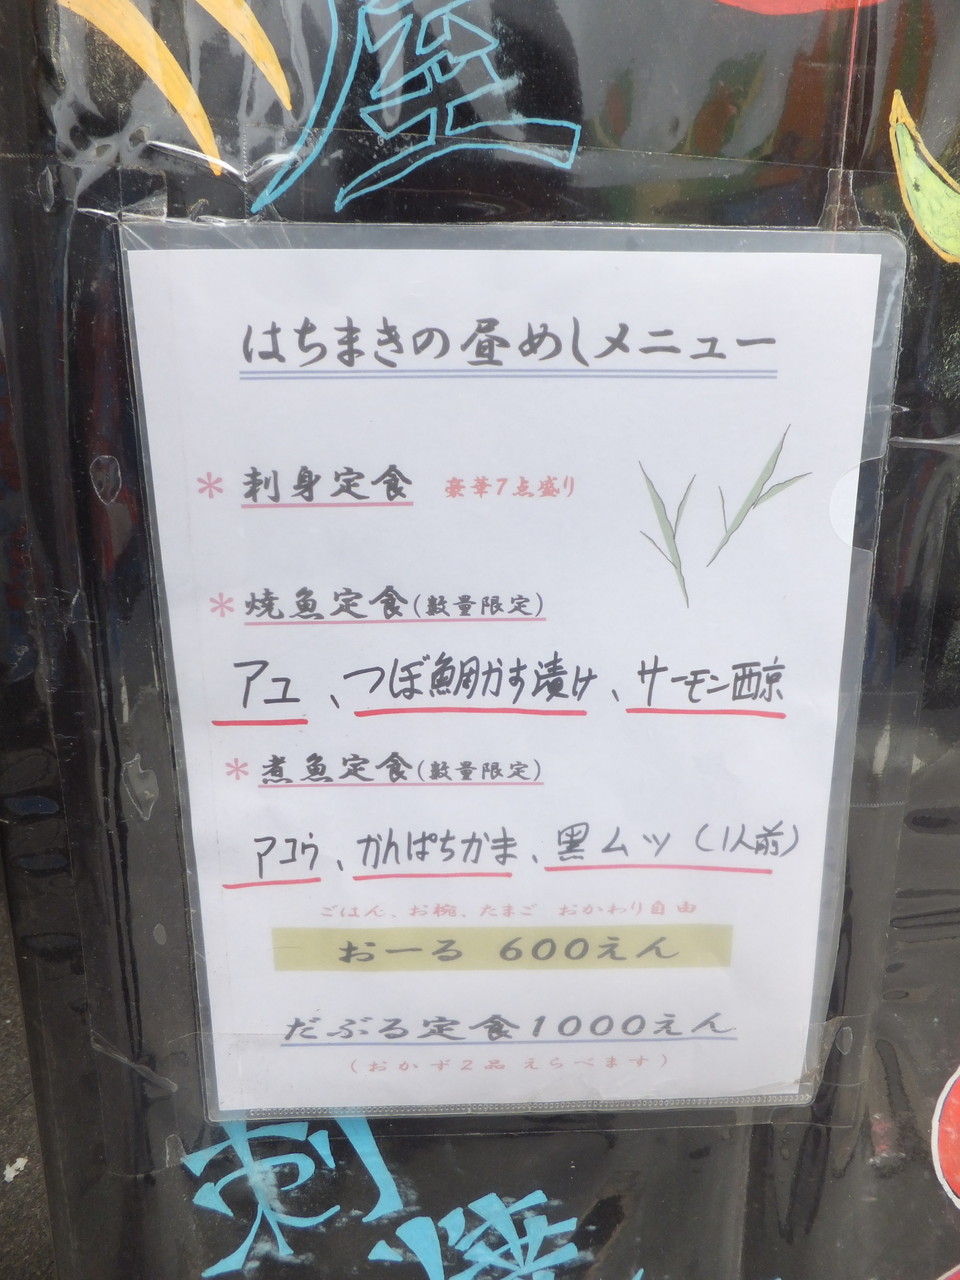 屋
はちまきの昼めしメニュー
＊刺身定食 豪華7点盛り
＊焼魚定食(数量限定)
アユ、つぼ鯛かす漬け、サーモン西京
＊煮魚定食(数量限定)
アコウ、かんぱちかま、黒ムツ(1人前)
ごはん、お椀、たまご おかわり自由
おーる 600えん
だぶる定食1000えん
(おかず2品えらべます)
刺